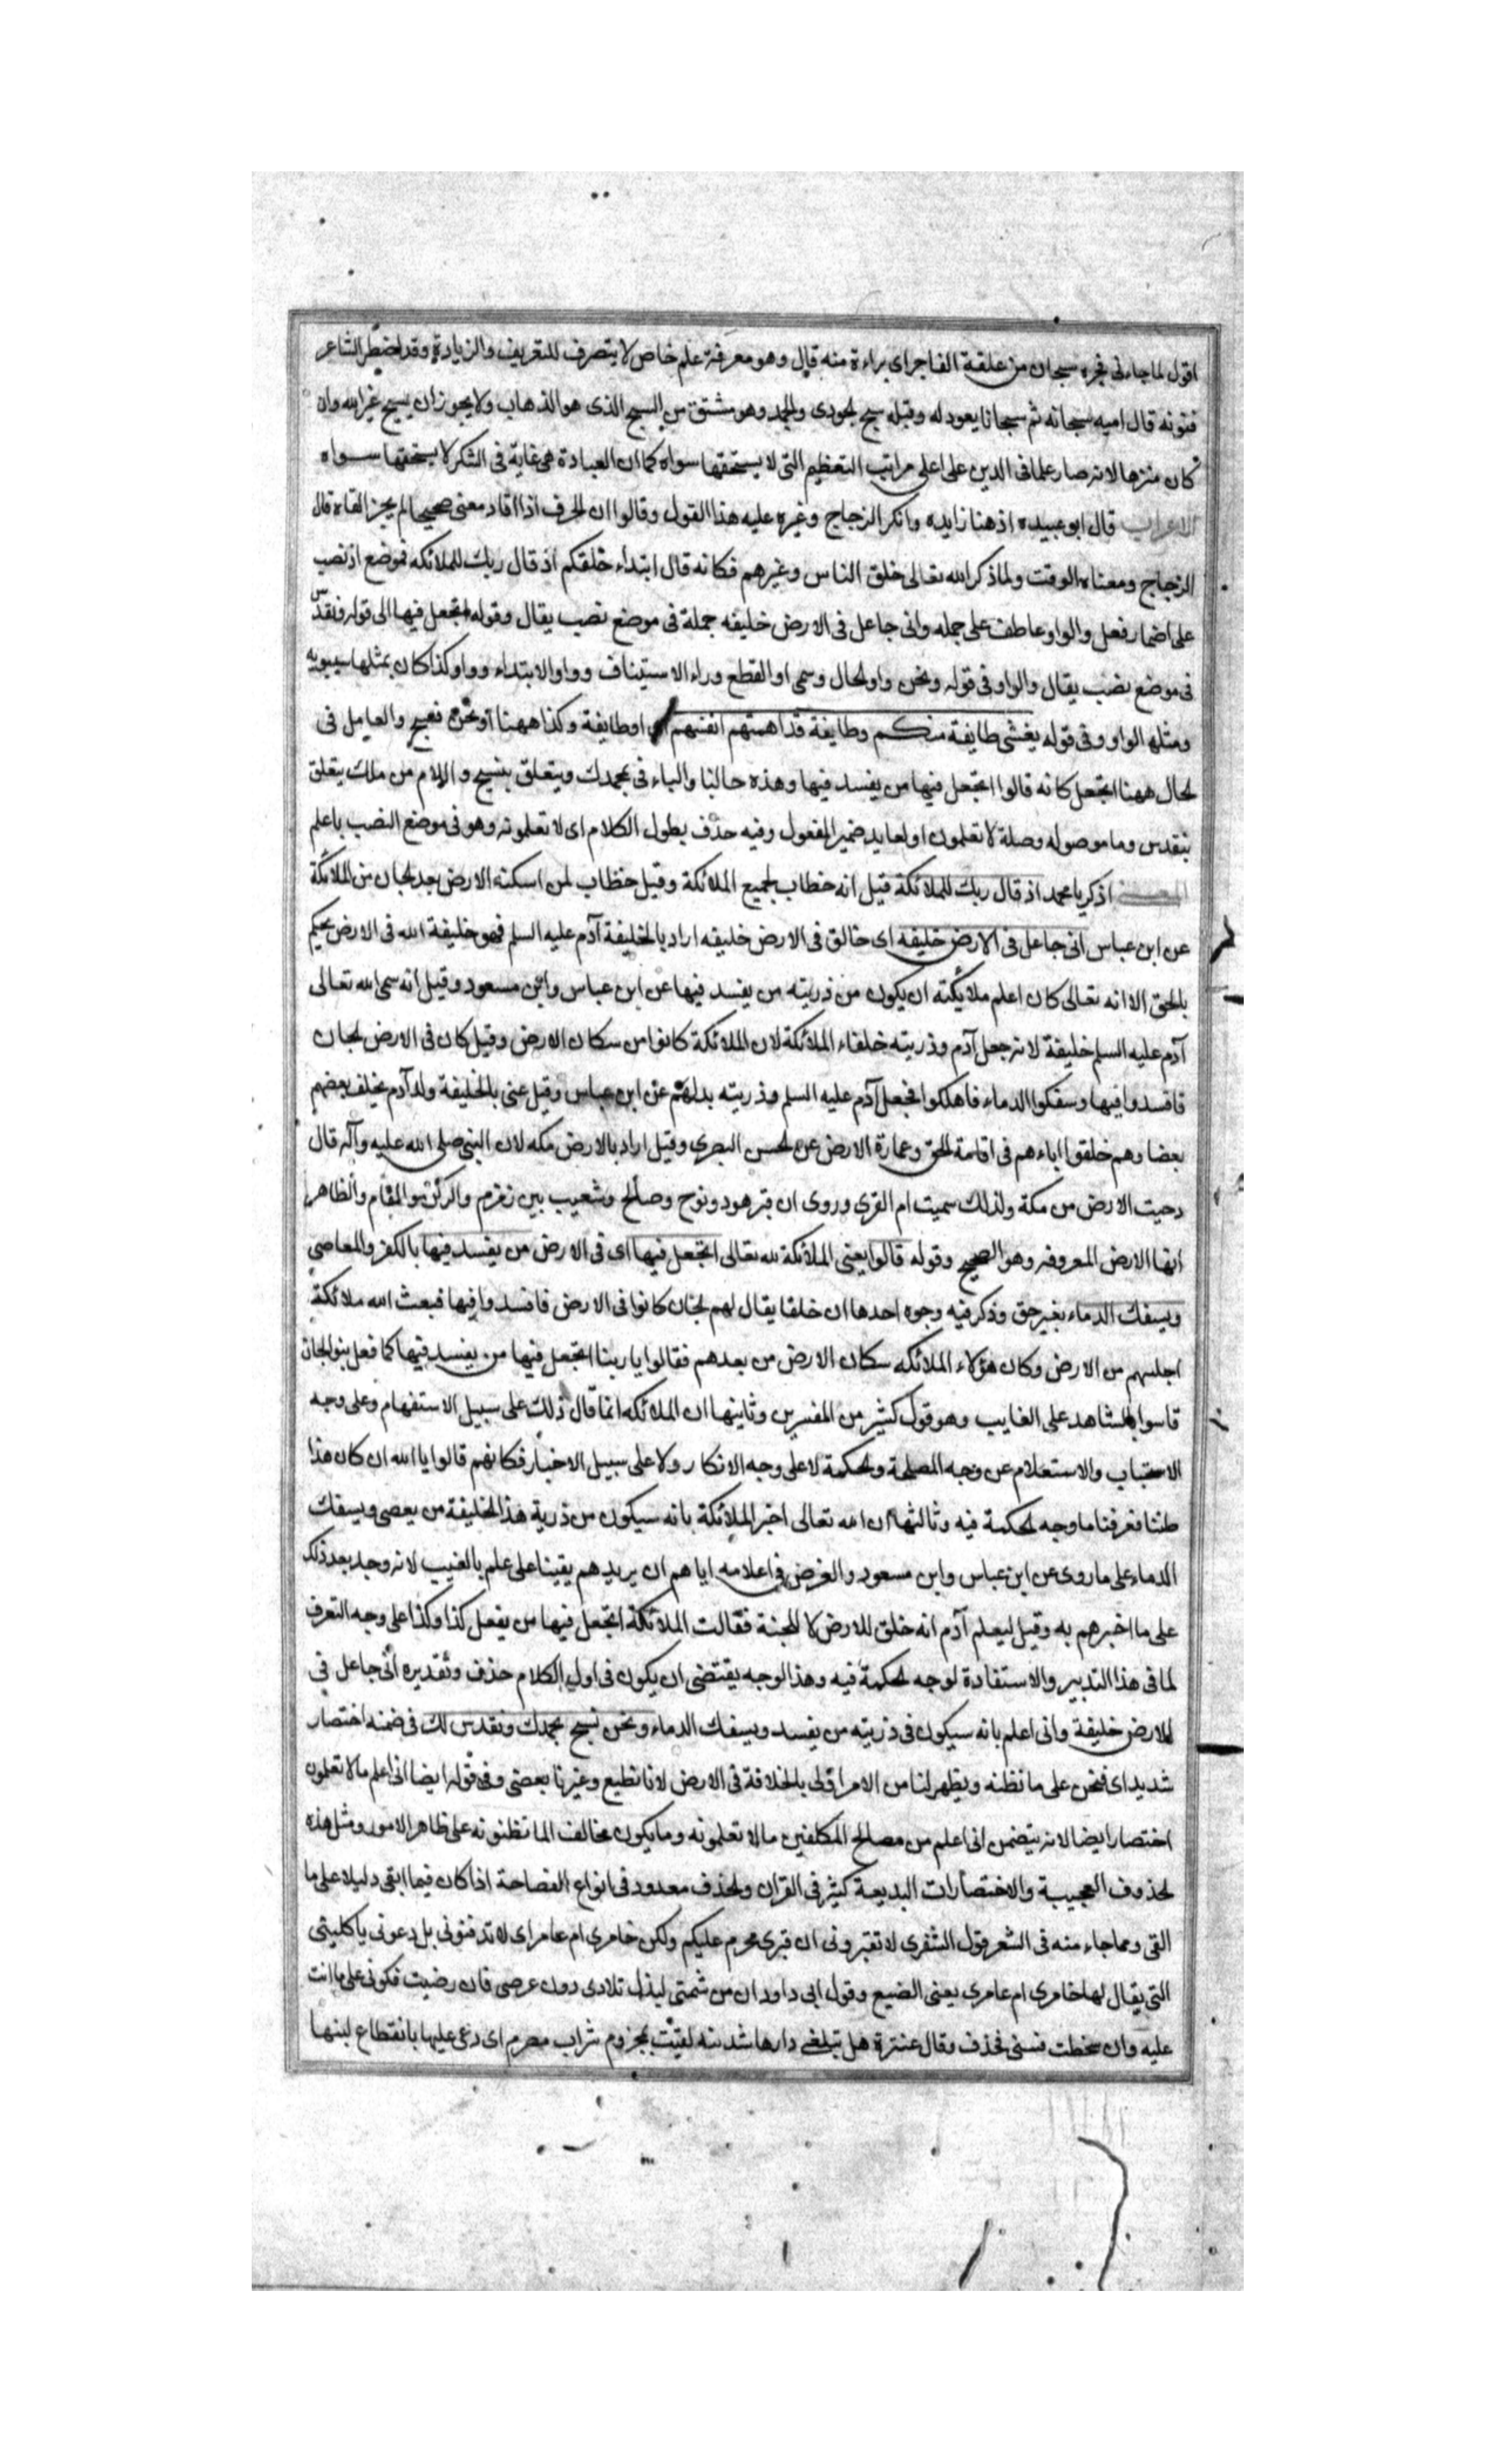 اقول لما جاءنى فجره سبحان من علقمة الفاجر اى براءة منه قال وهو معرفة علم خاص لا يتصرف للتعريف والزيادة وقد اضطر الشاعر
فنونه قال اميه سبحانه ثم سبحانا يعود له وقبله سبح لجودى والجمد وهو مشتق من السبح الذى هو الذهاب ولا يجوز ان يسبح غير الله وان
كان منزها لانه صار علما فى الدين على اعلى مراتب التعظيم التى لا يستحقها سواه كما ان العبادة هى غاية فى الشكر لا يستحقها سواه
الاعراب قال ابو عبيده اذ هنا زايده وانكر الزجاج وغيره عليه هذا القول وقالوا ان لحرف اذا افاد معنى صحيحا لم يجز القاه قال
الزجاج ومعناه الوقت ولما ذكر الله تعالى خلق الناس وغيرهم فكانه قال ابتداء خلقكم اذ قال ربك للملائكه فموضع اذ نصب
على اضمار فعل والواو عاطفت على جمله وانى جاعل فى الارض خليفه جملة فى موضع نصب يقال وقوله اتجعل فيها الى قوله ونقدس
فى موضع نصب يقال والواو فى قوله ونحن واو لحال وسمى او القطع وراء الاستيناف وواو الابتداء وواو كذا كان يمثلها سيبويه
ومثله الواو وفى قوله يغشى طايفة منكم وطايفة قد اهمتهم انفسهم اى او طايفة وكذا ههنا او نحن نسبح والعامل فى
لحال ههنا اتجعل كانه قالوا اتجعل فيها من يفسد فيها وهذه حالنا والباء فى بحمدك ويتعلق بنسبح واللام من ملك يتعلق
بنقدس وما موصوله وصلة لا تعلمون اولعايد ضمير المفعول وفيه حذف يطول الكلام اى لا تعلمونه وهو فى موضع النصب باعلم
المعنى اذكر يا محمد اذ قال ربك للملائكة قيل انه خطاب لجميع الملائكة وقيل خطاب لمن اسكنه الارض بعد لجان من الملائكة
عن ابن عباس انى جاعل فى الارض خليفه اى خالق فى الارض خليفه اراد بالخليفة آدم عليه السلم فهو خليفة الله فى الارض يحكم
بالحق الا انه تعالى كان اعلم ملائكته ان يكون من ذريته من يفسد فيها عن ابن عباس وابن مسعود وقيل انه سمى الله تعالى
آدم عليه السلم خليفة لانه جعل آدم وذريته خلفاء الملائكة لان الملائكة كانوا من سكان الارض وقيل كان فى الارض لجان
فافسدوا فيها وسفكوا الدماء فاهلكوا فجعل آدم عليه السلم وذريته بدلهم عن ابن عباس وقيل عنى بالخليفة ولد آدم يخلف بعضهم
بعضا وهم خلقوا اباءهم فى اقامة لحق وعمارة الارض عن لحسن البصرى وقيل اراد بالارض مكه لان النبى صلى الله عليه وآله قال
دحيت الارض من مكة ولذلك سميت ام القرى وروى ان قبر هود ونوح وصالح وشعيب بين زمزم والركن والمقام والظاهر
انها الارض المعروفه وهو الصحيح وقوله قالوا يعنى الملائكة لله تعالى اتجعل فيها اى فى الارض من يفسد فيها بالكفر والمعاصى
ويسفك الدماء بغير حق وذكر فيه وجوه احدها ان خلقا يقال لهم لجان كانوا فى الارض فافسدوا فيها فبعث الله ملائكة
اجلتهم من الارض وكان هؤلاء الملائكه سكان الارض من بعدهم فقالوا يا ربنا اتجعل فيها من يفسد فيها كما فعل بنو الجان
قاسوا بالشاهد على الغايب وهو قول كثير من المفسرين وثانيها ان الملائكه انما قال ذلك على سبيل الاستفهام وعلى وجه
والاستعلام عن وجه المصلحة ولحكمة لا على وجه الانكار ولا على سبيل الاخبار فكانهم قالوا يا الله ان كان هذا
ظننا فعرفنا ما وجه لحكمة فيه وثالثها ان الله تعالى اخبر الملائكة بانه سيكون من ذرية هذا الخليفة من يعصى ويسفك
الدماء على ما روى عن ابن عباس وابن مسعود والغرض فى اعلامه اياهم ان يريدهم يقينا على علم بالغيب لانه وجد بعد ذلك
على ما اخبرهم به وقيل ليعلم آدم انه خلق للارض لا للجنة فقالت الملائكة اتجعل فيها من يفعل كذا وكذا على وجه التعرف
لما فى هذا التدبير والاستفادة لوجه لحكمة فيه وهذ الوجه يقتضى ان يكون فى اول الكلام حذف وتقديره انى جاعل فى
الارض خليفة وانى اعلم بانه سيكون فى ذريته من يفسد ويسفك الدماء ونحن نسبح بحمدك ونقدس لك فى ضمنه اختصار
شديد اى فنحن على ما نظنه ويظهر لنا من الامر اولى بالخلافة فى الارض لانا نطيع وغيرنا يعصى وفى قوله ايضا انى اعلم ما لا تعلمون
اختصار ايضا لانه يتضمن انى اعلم من مصالح المكلفين ما لا تعلمونه وما يكون مخالفا لما تظنونه على ظاهر الامور ومثل هذه
لحذوف العجيبة والاختصارات البديعة كثير فى القران ولحذف معدود فى انواع الفصاحة اذا كان فيما ابقى دليلا على ما
القى ومما جاء منه فى الشعر قول الشنفرى لا تقبرونى ان قبرى محرم عليكم ولكن خامرى ام عامر اى لا تدفنونى بل دعونى ياكلنى
التى يقال لها خامرى ام عامرى يعنى الضبع وقول ابى داود ان من شمتى لبذل تلادى دون عرضى فان رضيت فكونى على ما انت
عليه وان سخطت فبينى فحذف وقال عنترة هل تبلغنى دارها شدنيه لقيت بمجزوم شراب مصرم اى دعى عليها بانقطاع لبنها